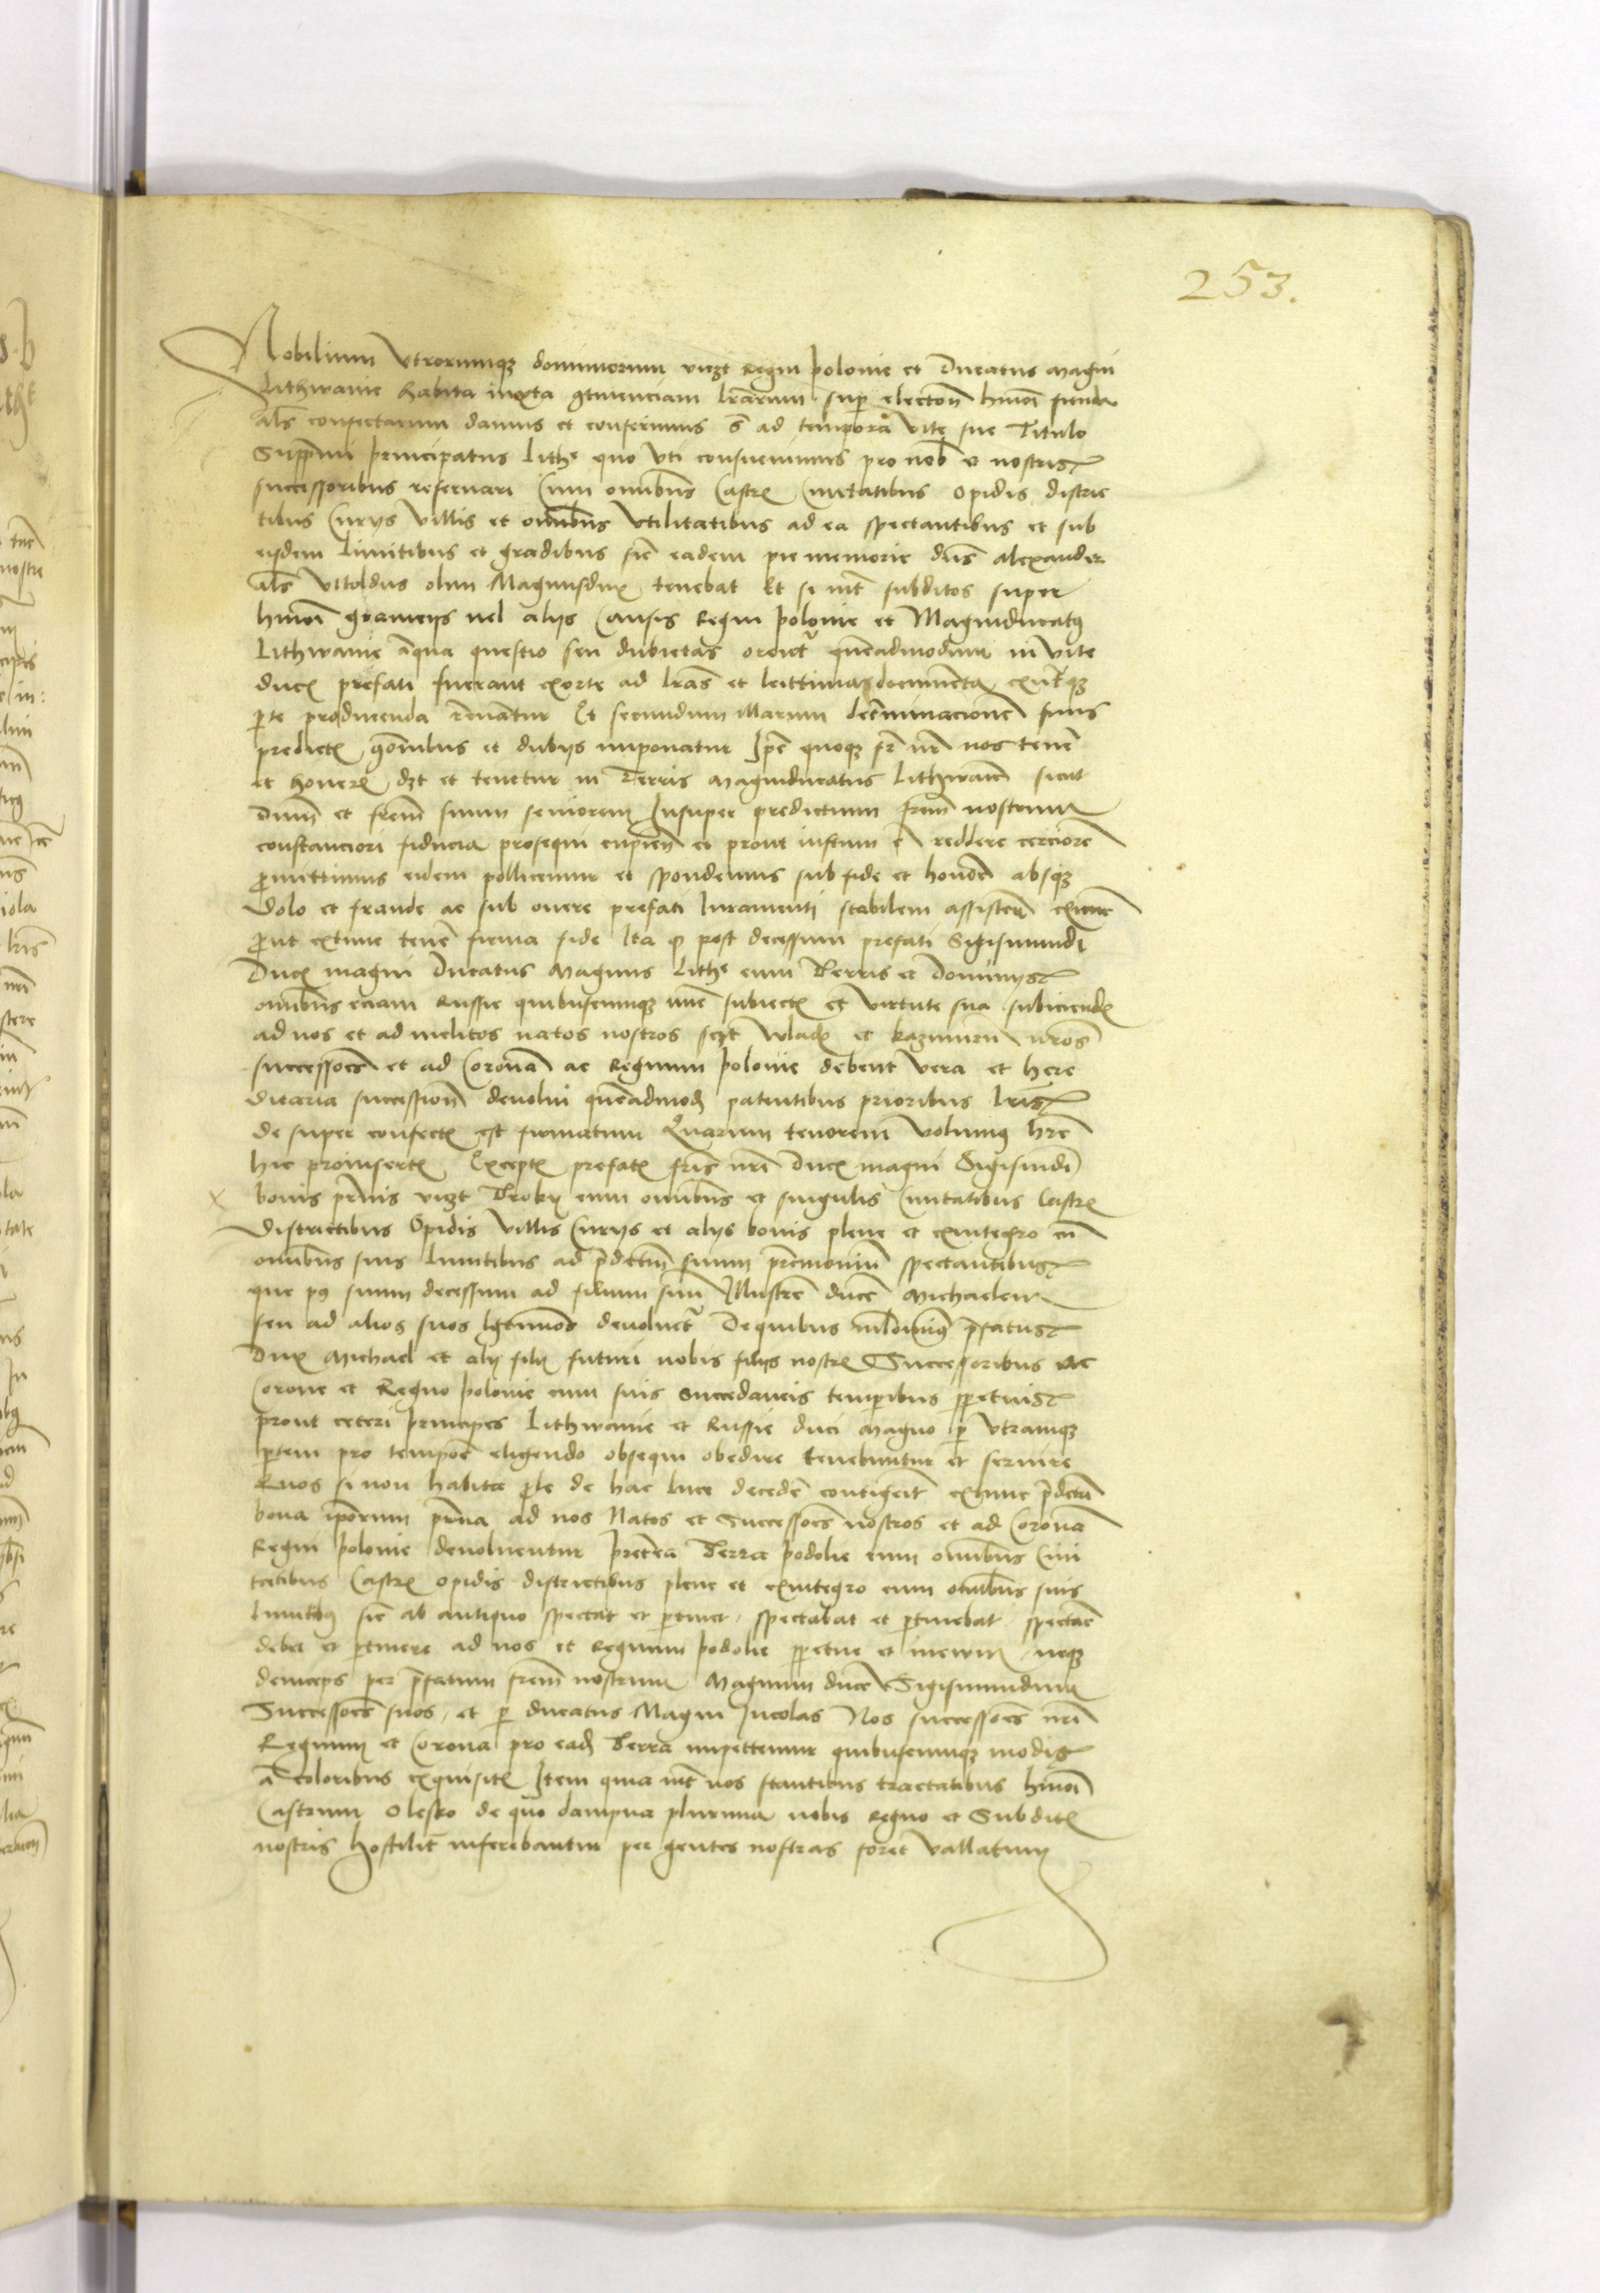 253.
Nobilium utrorumque dominiorum viczt Regni polonie et Ducatus magni
Lithwanie habita iuxta gtinenciam lrarum sup electoem hmoi fienda
als confectarum damus et conferimus ad tempora vite sue Titulo
Suppmi principatus Lith quo uti consuevimus pro nob et nostris
successoribus reservari Cum omnibus Castris Civitatibus opidis distric
tibus Curijs villis et omnibus utilitatibus ad ea spectantibus et sub
eisdem limitibus et gradibus sic eadem pie memorie dns alexander
als vitoldus olim Magnusdux tenebat Et si int subditos super
hmoi granicijs vel alijs Causis Regni polonie et Magniducatus
Lithwanie aliqua questio seu dubietas oriet quemadmodum in vite
ducis prefati fuerant exorte ad lras et leittimas documenta ex utraq
pte producenda recurratur Et secundum illarum determinacionem finis
predictis qstionibus et dubijs imponatur Ipse quoque fr nr nos tenere
et honorare dzt et tenetur in Terris magniducatus Lithwanie sicut
Dnum et frem suum seniorem Insuper predictum frem nostrum
constanciori fiducia prosequi cupientes et prout iustum e reddere cerciorem
pmittimus eidem pollicemur et spondemus sub fide et honore absque
dolo et fraude ac sub onere prefati Iuramenti stabilem assistenciam extunc
put extunc tenere firma fide Ita q post decessum prefati Sigismundi
Ducis magni Ducatus magnus Lith cum Terris et dominijs
omnibus eciam Russie quibuscumque nunc subiectis et virtute sua subiciendis
ad nos et ad inclitos natos nostros sczt wlad et kazimirum nros
successores et ad Coronam ac Regnum polonie debent vera et here
ditaria successione devolvi quemadmodum patentibus prioribus lris
de super confectis est firmatum Quarum tenorem volumus hre
hic pro insertis Exceptis prefatis fris nri Ducis magni Sigismdi
bonis prnis viczt Troky cum omnibus et singulis Civitatibus Castris
Districtibus Opidis villis Curijs et alijs bonis plene et exintegro cum
omnibus suis limitibus ad pdctum suum primonium spectantibus
que pus suum decessum ad filium suum Illustrem ducem Michaelem
seu ad alios suos lgtimos devolvet De quibus nlominus pfatus
Dux Michael et alij filij futuri nobis filijs nostris Successoribus ac
Corone et Regno polonie cum suis succedaneis temporibus ppetuis
prout ceteri principes Lithwanie et Russie duci magno p utramque
ptem pro tempore eligendo obsequi obedire tenebuntur et servire
Quos si non habita ple de hac luce decedere contigerit extunc pdcta
bona ipsorum prna ad nos Natos et Successores nostros et ad Coronam
Regni polonie devolventur preterea Terra podolie cum omnibus Civi
tatibus Castris opidis districtibus plene et exintegro cum omnibus suis
limitibus sic ab antiquo spectat et ptinet spectabat et ptinebat spectare
debet et ptinere ad nos et Regnum podolie ppetue et inevum neque
deinceps per pfatum frem nostrum Magnum ducem Sigismundum
Successores suos et p ducatus Magni Incolas Nos successores nri
Regnum et Corona pro eadem Terra impettemur quibuscumque modis
a coloribus exquisitis Item quia int nos stantibus tractatibus hmoi
Castrum olesko de quo dampna plurima nobis Regno et Subditis
nostris hostilit inferebantur per gentes nostras foret vallatum